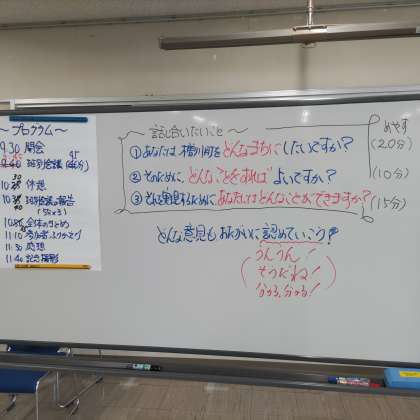 ～プログラム～
9.30 開会
9.40 班別会議 (45分)
10:30 休憩
10:40 班別会議の報告
(5分×3)
全体のまとめ
11:10
11:30 感想
11:40 記念撮影
～話し合いたいこと～
めやす
①あなたは、檜川町をどんなまちにしたいですか？ (20分)
②そのために、どんなことをあればよいですか？ (10分)
③それを実現するためにあなたにはどんなことができますか？ (15分)
どんな意見もおたがいに認めていこう！
うんうん！
そうだね！
分かる、分かる！